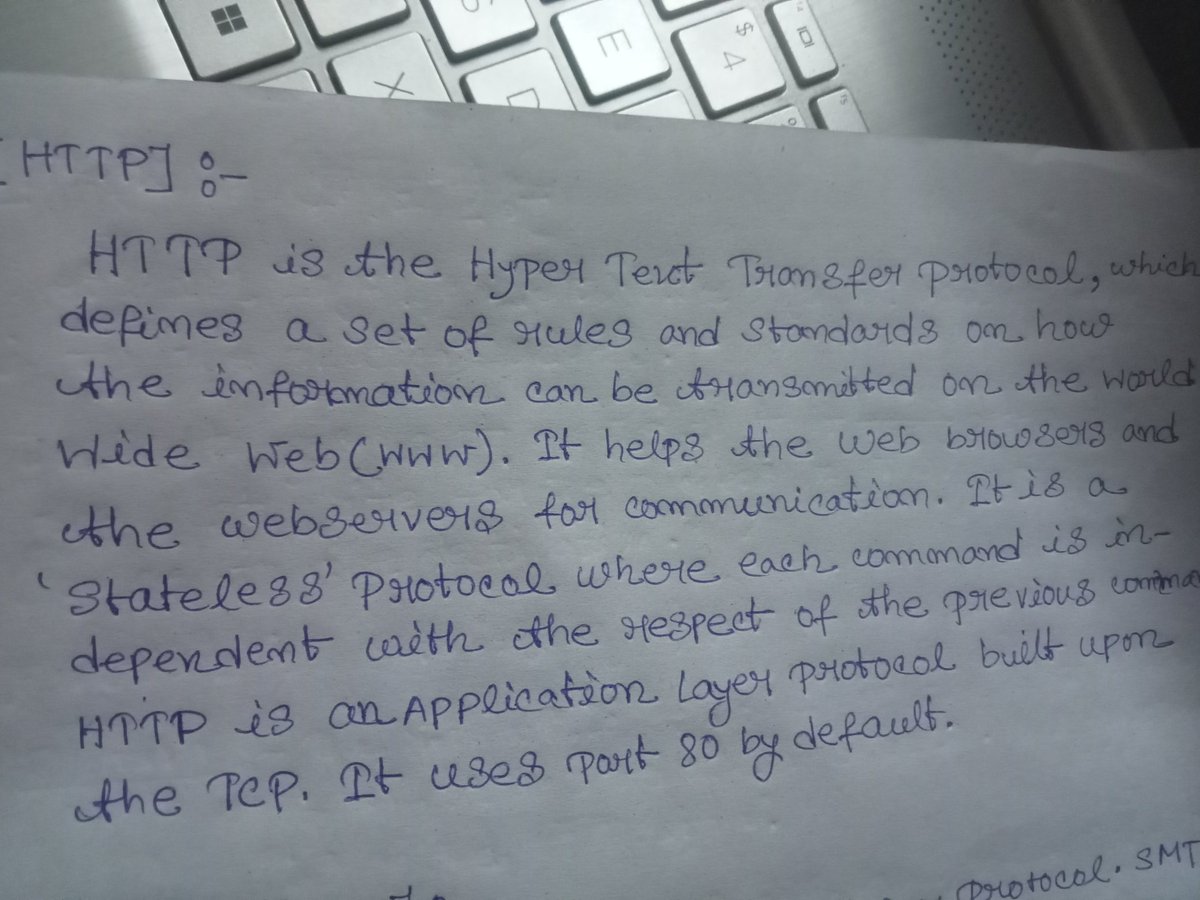 E
$
4
X
[HTTP] :-
HTTP is the Hyper Text Transfer protocol, which
defines a set of rules and standards on how
the information can be transmitted on the world
Wide Web (WWW). It helps the web browsers and
the webservers for communication. It is a
'Stateless' Protocol where each command is in-
dependent with the respect of the previous comma
HTTP is an APPlication Layer protocol built upon
the TCP. It uses port 80 by default.
protocol. SMT